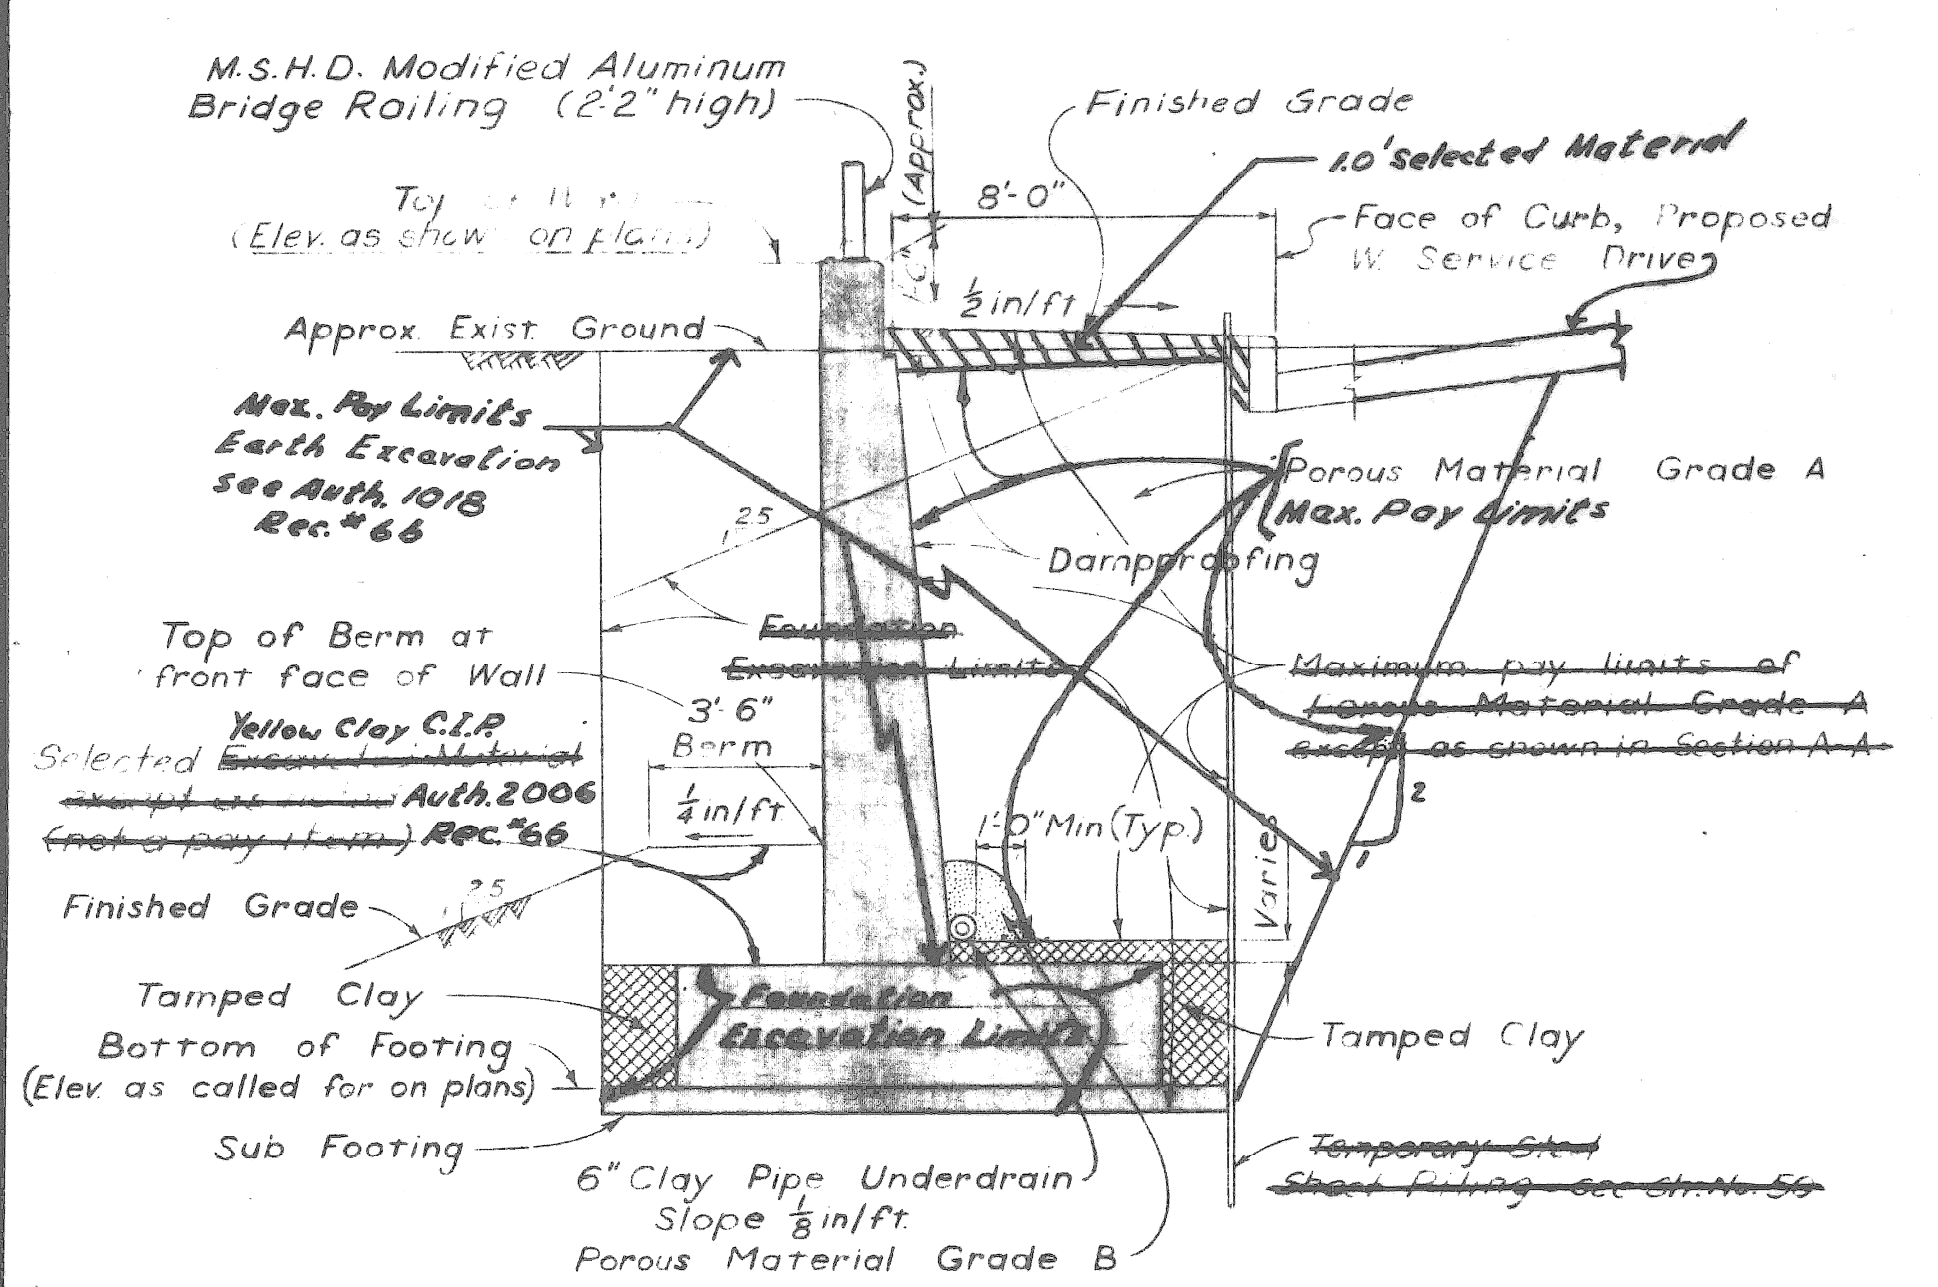 M.S.H.D. Modified Aluminum
Bridge Railing (2'2" high)
(Approx.)
Finished Grade
1.0' selected Material
8'-0"
Top
(Elev. as shown on plans)
Face of Curb, Proposed
W. Service Drive
1/2 in/ft
Approx. Exist. Ground
Max. Pay Limits
Earth Excavation
see Auth. 1018
Rec. # 66
Porous Material Grade A
Max. Pay Limits
1
25
Dampproofing
Foundation
Excavation Limits
Top of Berm at
front face of Wall
Maximum pay limits of
Porous Material Grade A
except as shown in Section A-A
3'-6"
Berm
Yellow Clay C.I.P.
Selected Excavated Material
except as Auth. 2006
(not a pay item) Rec. #66
1/4 in/ft
1'-0" Min (Typ.)
Varies
2
1
Finished Grade
1
25
Tamped Clay
Foundation
Excavation Limits
Tamped Clay
Bottom of Footing
(Elev. as called for on plans)
Sub Footing
Temporary Steel
Sheet Piling - see Sh. No. 56
6" Clay Pipe Underdrain
Slope 1/8 in/ft.
Porous Material Grade B